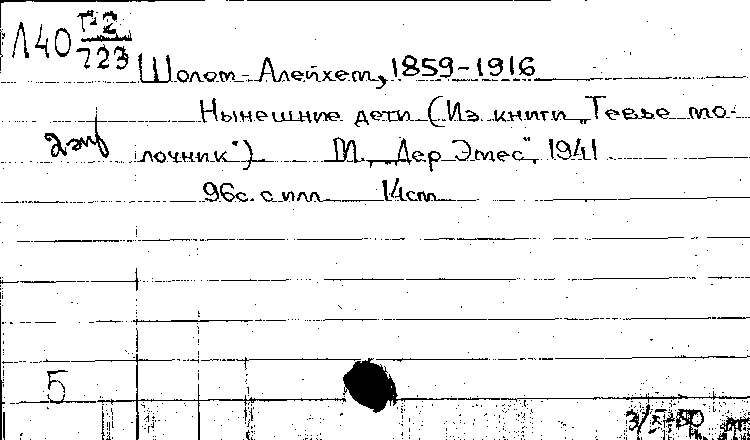 Л40 Г-2/723
Шолом-Алейхем, 1859-1916
Нынешние дети (Из книги „Тевье мо-
2 экз
лочник") М., „Дер Эмес", 1941
96с. с илл 14cm
5
3/5-50